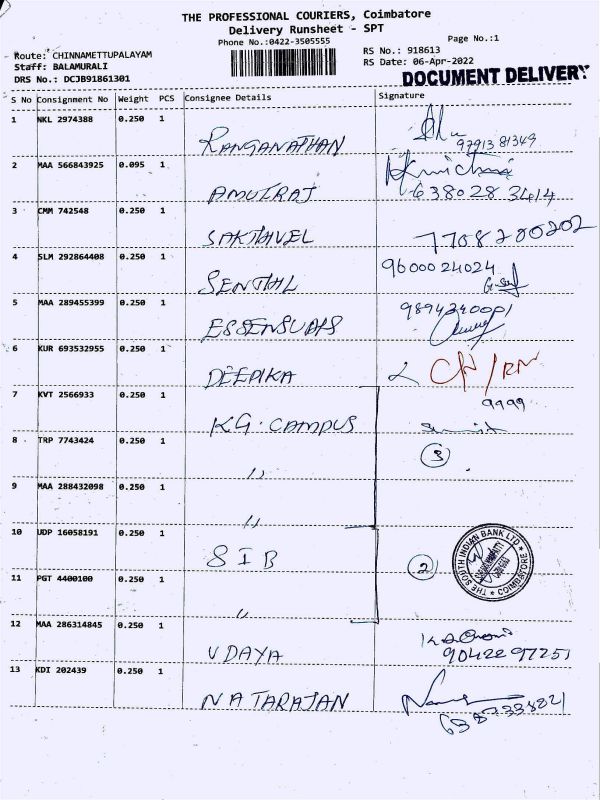 THE PROFESSIONAL COURIERS, Coimbatore
Delivery Runsheet - SPT
Phone No.:0422-3505555
Page No.:1
Route: CHINNAMETTUPALAYAM
RS No.: 918613
Staff: BALAMURALI
RS Date: 06-Apr-2022
DRS No.: DCJB91861301
DOCUMENT DELIVERY
S No Consignment No Weight PCS Consignee Details Signature
1 NKL 2974388 0.250 1
RANGANATHAN 9791381349
2 MAA 566843925 0.095 1
AMUTRAJ 6380283414
3 CMM 742548 0.250 1
SAKTHIVEL 7708200202
4 SLM 292864408 0.250 1
9600024024
SENTHIL
5 MAA 289455399 0.250 1
9894340001
6 KUR 693532955 0.250 1
DEEPIKA
7 KVT 2566933 0.250 1
9999
KG. CAMPUS
8 TRP 7743424 0.250 1
3
"
9 MAA 288432098 0.250 1
"
10 UDP 16058191 0.250 1
SIB 2
THE SOUTH INDIAN BANK LTD * COIMBATORE *
11 PGT 4400100 0.250 1
"
12 MAA 286314845 0.250 1
UDAYA 9042297251
13 KDI 202439 0.250 1
NATARAJAN